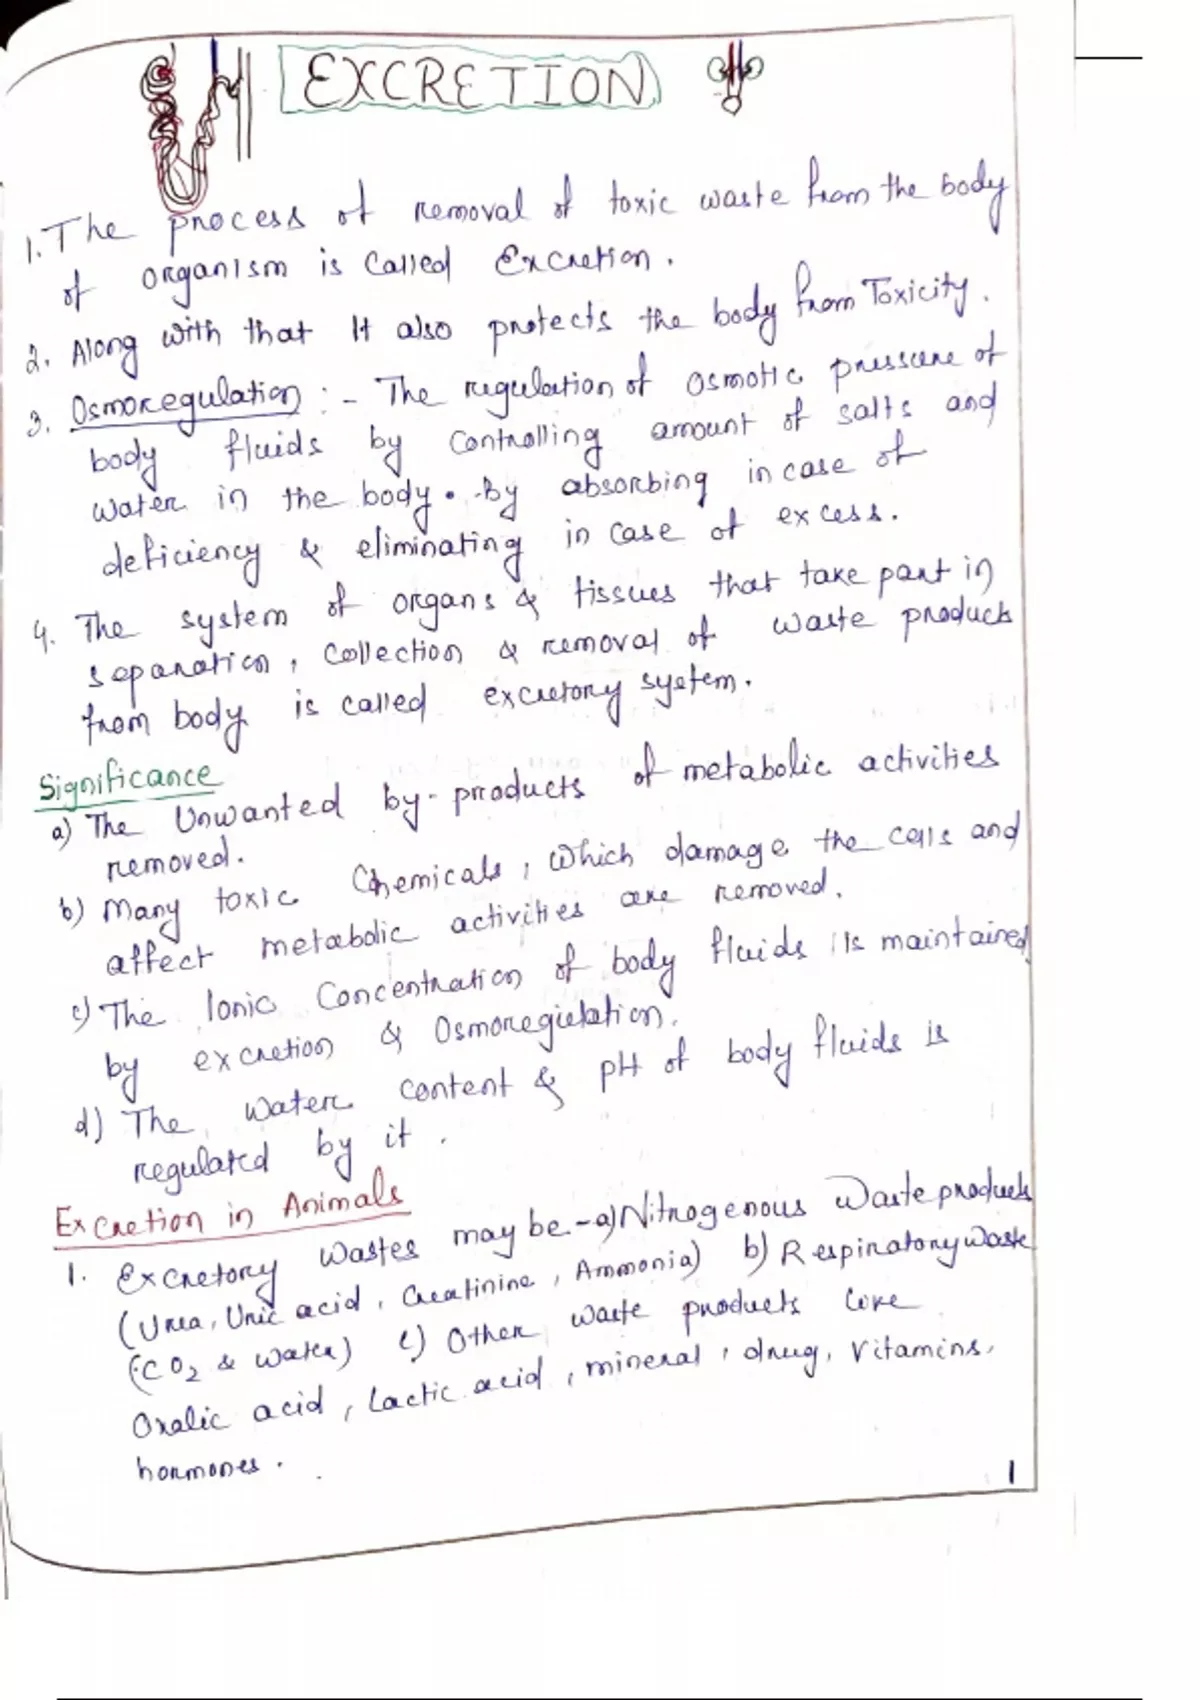 EXCRETION
1. The process of removal of toxic waste from the body
of organism is called Excretion.
2. Along with that It also protects the body from Toxicity.
3. Osmoregulation :- The regulation of osmotic pressure of
body fluids by controlling amount of salts and
water in the body. By absorbing in case of
deficiency & eliminating in case of excess.
4. The system of organs & tissues that take part in
separation, collection & removal of waste products
from body is called excretory system.
Significance
a) The Unwanted by-products of metabolic activities
removed.
b) Many toxic Chemicals, which damage the cells and
affect metabolic activities are removed.
c) The Ionic Concentration of body fluids is maintained
by excretion & Osmoregulation.
d) The water content & pH of body fluids is
regulated by it.
Excretion in Animals
1. Excretory wastes may be - a) Nitrogenous Waste products
(Urea, Uric acid, Creatinine, Ammonia) b) Respiratory waste
(CO2 & water) c) Other waste products like
Oxalic acid, Lactic acid, mineral, drug, vitamins,
hormones.
1